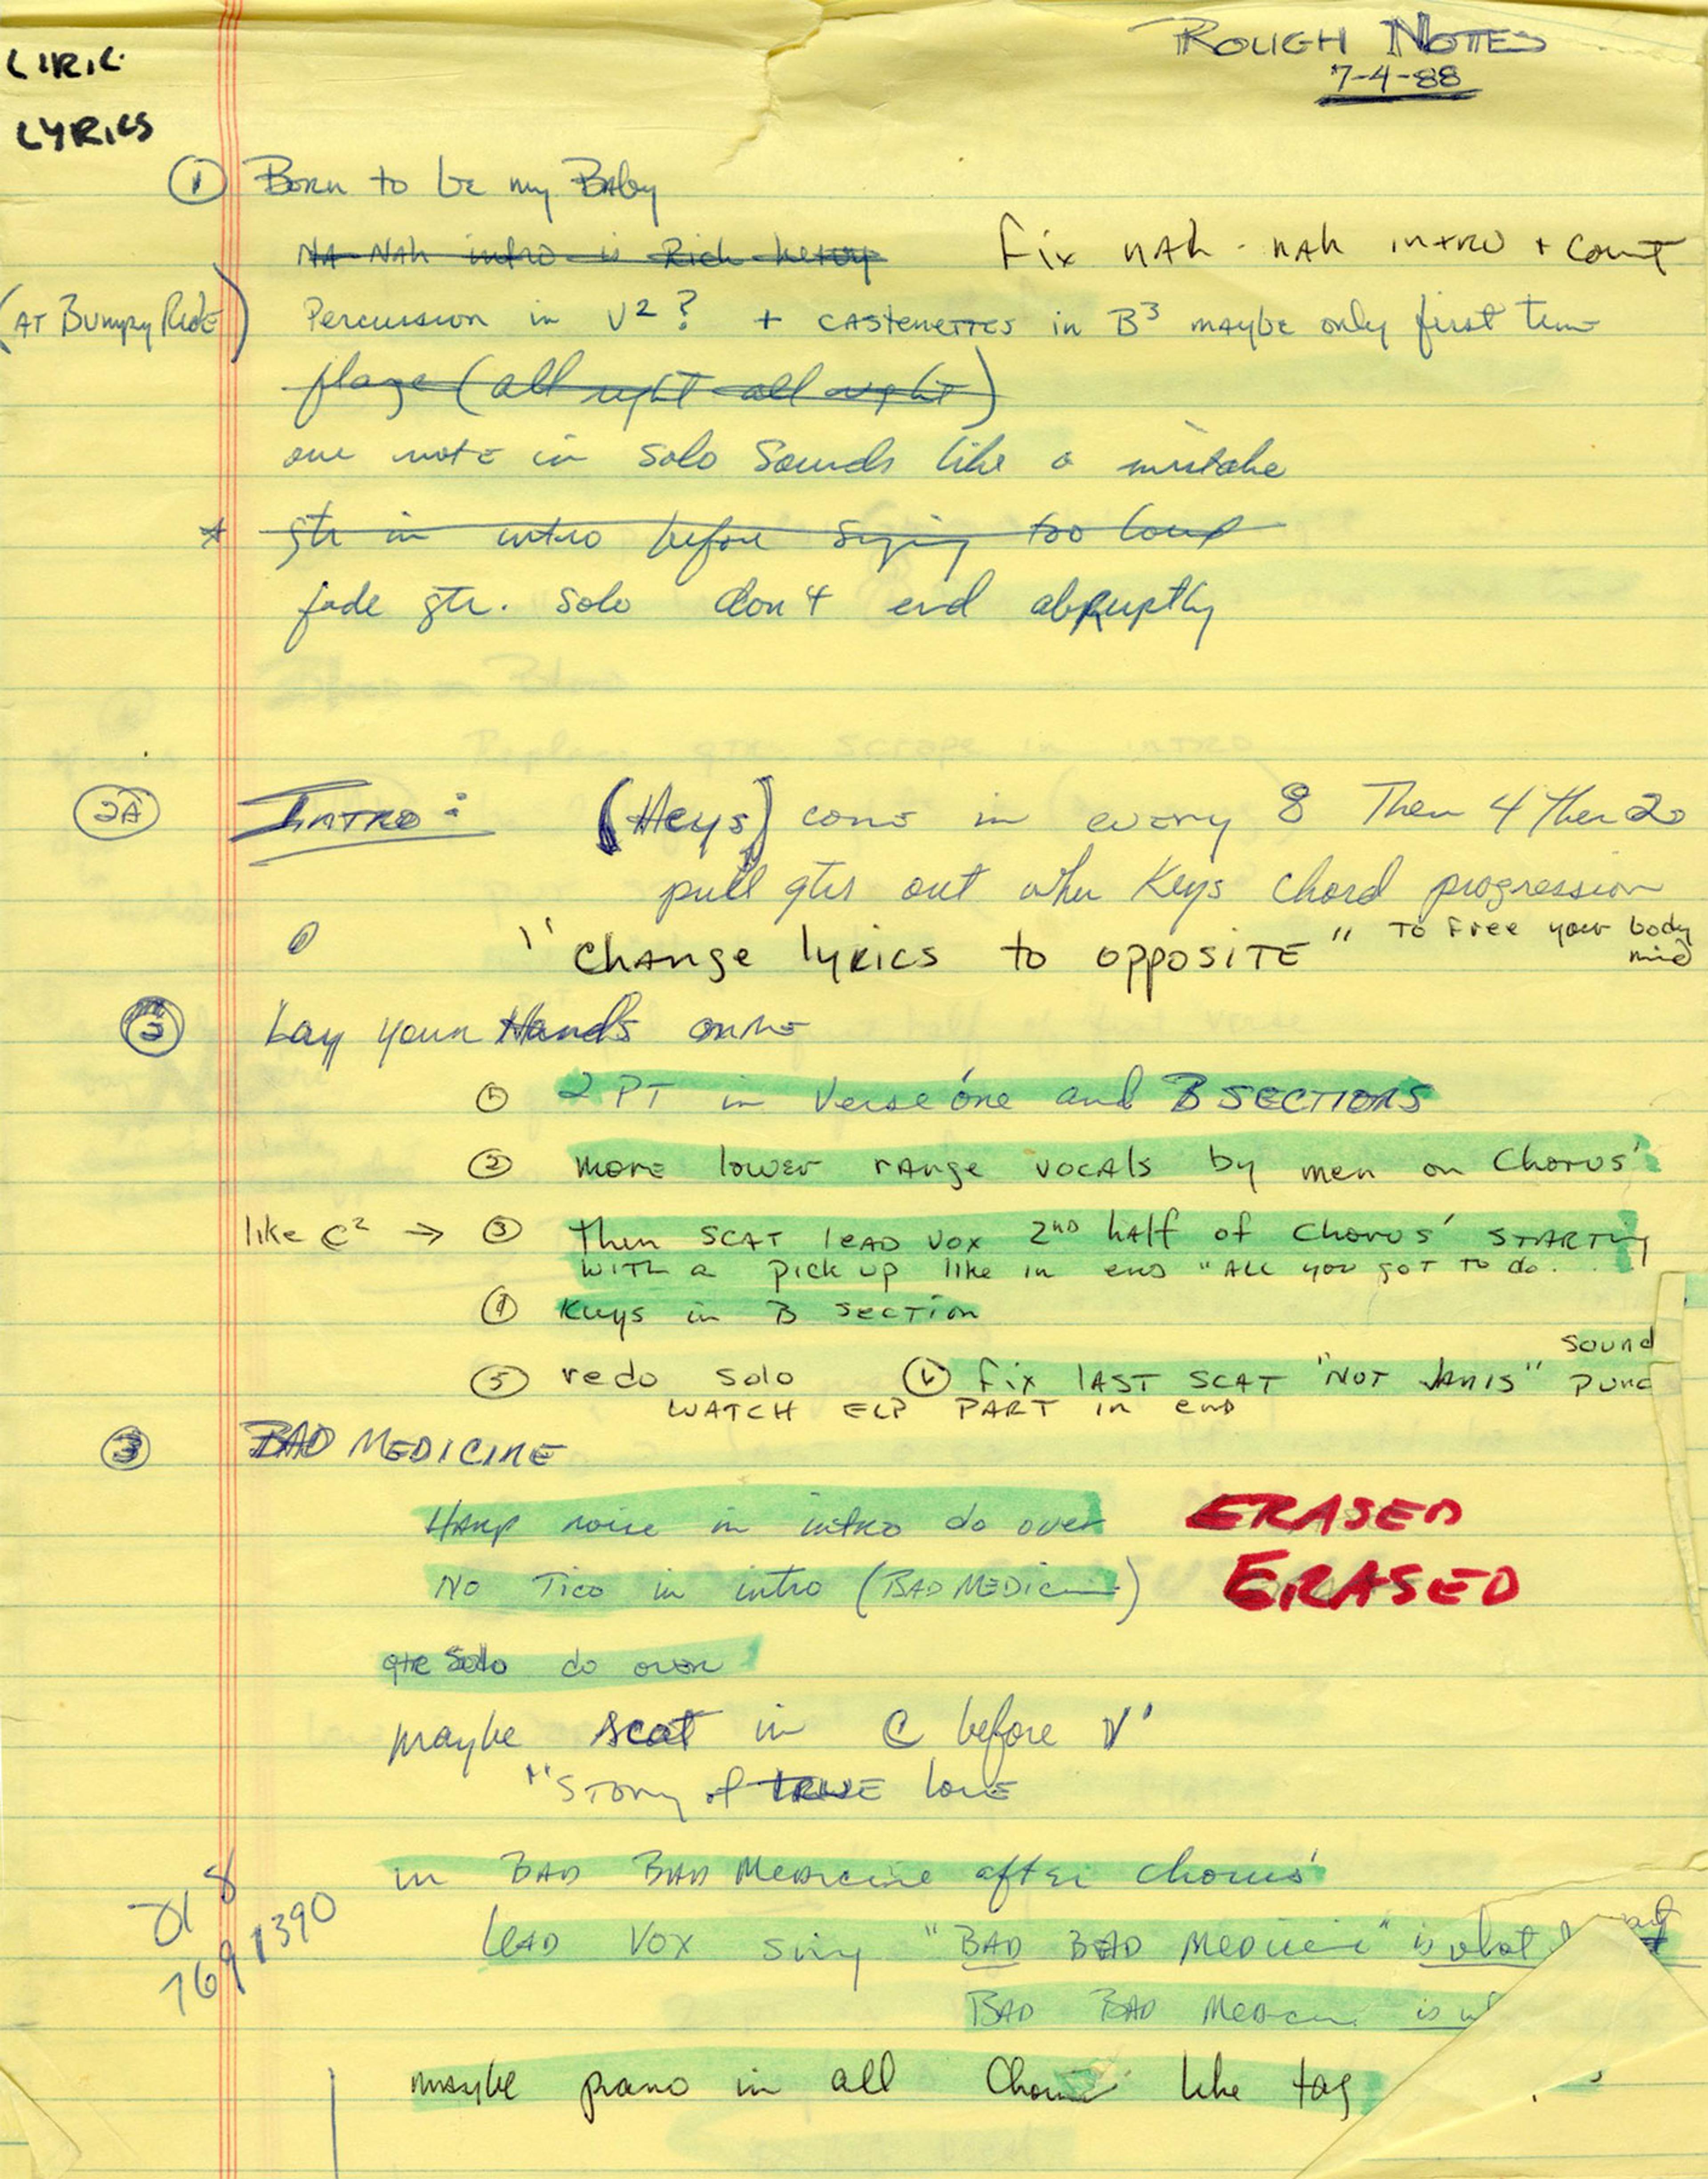 LIRIC
ROUGH NOTES
7-4-88
LYRICS
① Born to be my Baby
NA-NAh intro is Rich heavy
Fix nAh-nAh intro + Count
(AT Bumpy Ride) Percussion in V² ? + CASTENETTES in B³ maybe only first time
flange (all right all right)
one note in solo Sounds like a mistake
* gtr in intro before singing too loud
fade gtr. solo don't end abRuptly
2A INTRO: (Keys) come in every 8 Then 4 Then 2
pull gtrs out when Keys Chord progression
"Change lyrics to opposiTE" To Free your body mind
2 Lay your Hands on me
① 2 PT in Verse one and B SECTIONS
② more lower range vocals by men on Chorus'
like C² → ③ then SCAT lEAD vox 2ND half of Chorus' STARTing
WITH a pick up like in end "ALL you goT To do..
④ Keys in B section
⑤ redo solo ⑥ fix lAST SCAT "NOT JANIS" sound punc
WATCH ELP PART in end
③ BAD MEDICINE
Harp noise in intro do over ERASED
No Tico in intro (BAD MEDicin) ERASED
gtr Solo do over
maybe scat in C before V'
"Story of TRUE love
in BAD BAD Medicine after chorus'
LEAD VOX sing "BAD BAD Medicine" is what I
BAD BAD Medicin is
018
7691390
maybe piano in all Chorus like tag